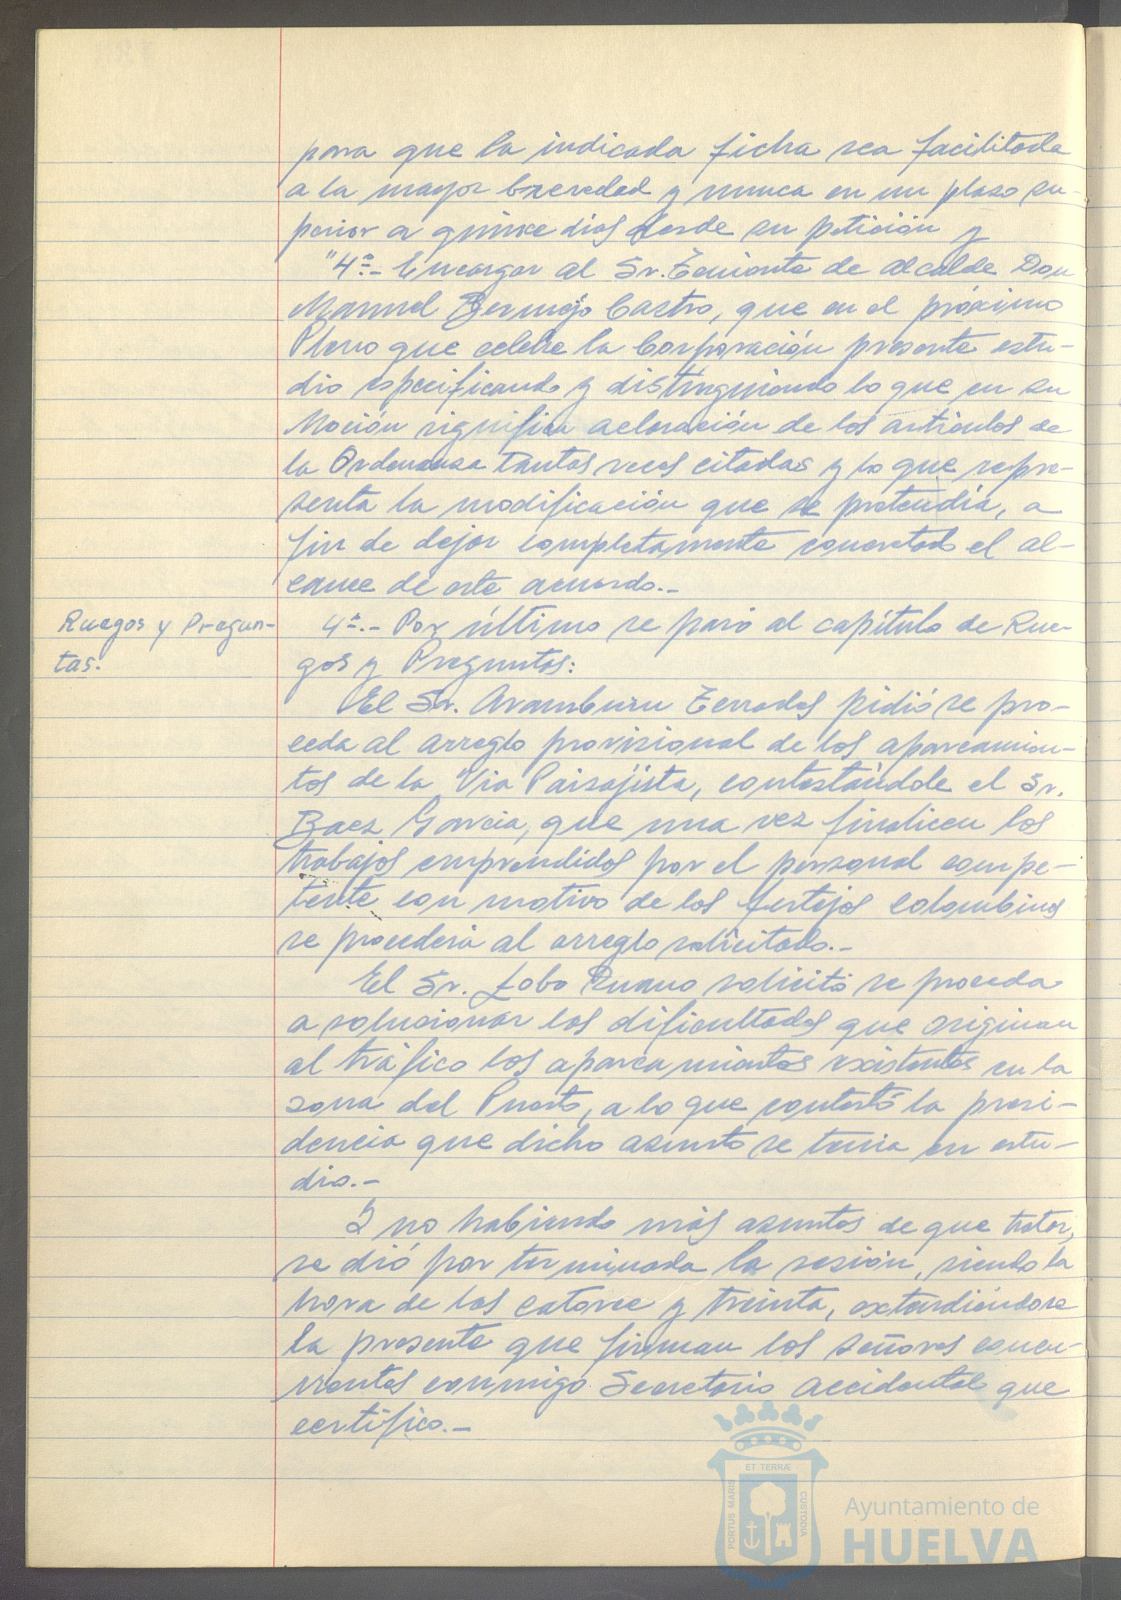 para que la indicada ficha sea facilitada
a la mayor brevedad y nunca en un plazo su-
perior a quince dias desde su petición y
"4ª.- Encargar al Sr. Teniente de alcalde Don
Manuel Bermejo Castro, que en el próximo
Pleno que celebre la Corporación presente estu-
dio especificando y distinguiendo lo que en su
Moción significa aclaración de los articulos de
la Ordenanza tantas veces citadas y lo que repre-
senta la modificación que se pretendía, a
fin de dejar completamente concretado el al-
cance de este acuerdo.-
Ruegos y Pregun-
tas.
4º.- Por último se pasó al capítulo de Rue-
gos y Preguntas:
El Sr. Aramburu Terrades pidió se pro-
ceda al arreglo provisional de los aparcamien-
tos de la Via Paisajista, contestándole el Sr.
Baez Garcia, que una vez finalicen los
trabajos emprendidos por el personal compe-
tente con motivo de los festejos colombinos
se procederá al arreglo solicitado.-
El Sr. Lobo Ruano solicitó se proceda
a solucionar las dificultades que originan
al tráfico los aparcamientos existentes en la
zona del Puerto, a lo que contestó la presi-
dencia que dicho asunto se tenia en estu-
dio.-
Y no habiendo más asuntos de que tratar,
se dió por terminada la sesión, siendo la
hora de las catorce y treinta, extendiéndose
la presente que firman los señores concu-
rrentes conmigo Secretario accidental que
certifico.-
ET TERRÆ
PORTUS MARIS
CUSTODIA
Ayuntamiento de
HUELVA